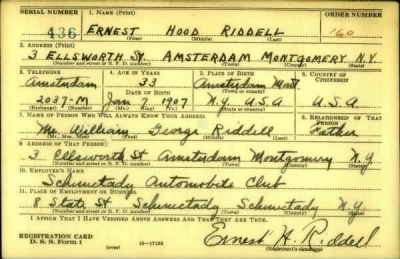 SERIAL NUMBER 1. NAME (Print) ORDER NUMBER
436 ERNEST HOOD RIDDELL 160
(First) (Middle) (Last)
2. ADDRESS (Print)
3 ELLSWORTH ST. AMSTERDAM MONTGOMERY N.Y.
(Number and street or R. F. D. number) (Town) (County) (State)
3. TELEPHONE 4. AGE IN YEARS 5. PLACE OF BIRTH 6. COUNTRY OF CITIZENSHIP
Amsterdam 33 Amsterdam Mont.
DATE OF BIRTH (Town or county)
2037-M Jan 7 1907 N.Y. U.S.A U.S.A
(Exchange) (Number) (Mo.) (Day) (Yr.) (State or country)
7. NAME OF PERSON WHO WILL ALWAYS KNOW YOUR ADDRESS 8. RELATIONSHIP OF THAT PERSON
Mr. William George Riddell Father
(Mr., Mrs., Miss) (First) (Middle) (Last)
9. ADDRESS OF THAT PERSON
3 Ellsworth St Amsterdam Montgomery N.Y
(Number and street or R. F. D. number) (Town) (County) (State)
10. EMPLOYER'S NAME
Schenectady Automobile Club
11. PLACE OF EMPLOYMENT OR BUSINESS
8 State St Schenectady Schenectady N.Y.
(Number and street or R. F. D. number) (Town) (County) (State)
I AFFIRM THAT I HAVE VERIFIED ABOVE ANSWERS AND THAT THEY ARE TRUE.
REGISTRATION CARD Ernest H. Riddell
D. S. S. Form 1 (over) 16-17105 (Registrant's signature)